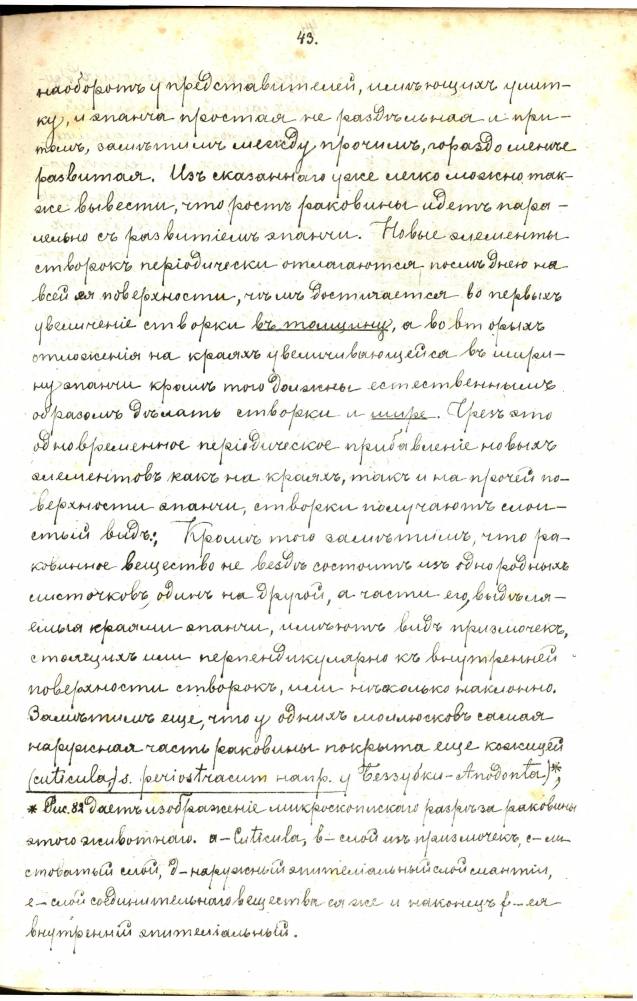 43.
наоборотъ у представителей, имѣющихъ улит-
ку, и эпанча простая не раздѣльная и при-
томъ, замѣтимъ между прочимъ, гораздо менѣе
развитая. Изъ сказаннаго уже легко можно так-
же вывести, что ростъ раковины идетъ пара-
лельно съ развитіемъ эпанчи. Новые элементы
створокъ періодически отлагаются послѣднею на
всей ея поверхности, чѣмъ достигается во первыхъ
увеличеніе створки въ толщину, а во вторыхъ
отложенія на краяхъ увеличивающейся въ шири-
ну эпанчи кромѣ того должны естественнымъ
образомъ дѣлать створки и шире. Чрезъ это
одновременное періодическое прибавленіе новыхъ
элементовъ какъ на краяхъ, такъ и на прочей по-
верхности эпанчи, створки получаютъ слои-
стый видъ; Кромѣ того замѣтимъ, что ра-
ковинное вещество не вездѣ состоитъ изъ однородныхъ
листочковъ, одинъ на другой, а части его, выдѣля-
емыя краями эпанчи, имѣютъ видъ призмочекъ,
стоящихъ или перпендикулярно къ внутренней
поверхности створокъ, или нѣсколько наклонно.
Замѣтимъ еще, что у однихъ моллюсковъ самая
наружная часть раковины покрыта еще кожицей
(cuticula,) s. periostracum напр. у Беззубки-Anodonta)*;
* Рис. 82 даетъ изображеніе микроскопискаго разрѣза раковины
этого животнаго. a-Cuticula, b-слой изъ призмочекъ, c-ли-
стоватый слой, d-наружный эпителіальный слой мантіи,
e-слой соединительнаго вещества ея же и наконецъ f-ея
внутренній эпителіальный.